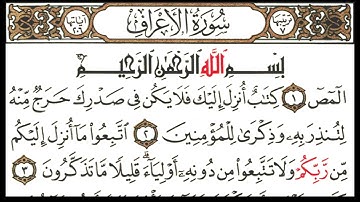 ترتيبها ٧ سُورَةُ الأَعۡرَافِ آياتها ٢٠٦
بِسۡمِ ٱللَّهِ ٱلرَّحۡمَٰنِ ٱلرَّحِيمِ
الٓمٓصٓ ١ كِتَٰبٌ أُنزِلَ إِلَيۡكَ فَلَا يَكُن فِي صَدۡرِكَ حَرَجٞ مِّنۡهُ
لِتُنذِرَ بِهِۦ وَذِكۡرَىٰ لِلۡمُؤۡمِنِينَ ٢ ٱتَّبِعُواْ مَآ أُنزِلَ إِلَيۡكُم
مِّن رَّبِّكُمۡ وَلَا تَتَّبِعُواْ مِن دُونِهِۦٓ أَوۡلِيَآءَۗ قَلِيلٗا مَّا تَذَكَّرُونَ ٣